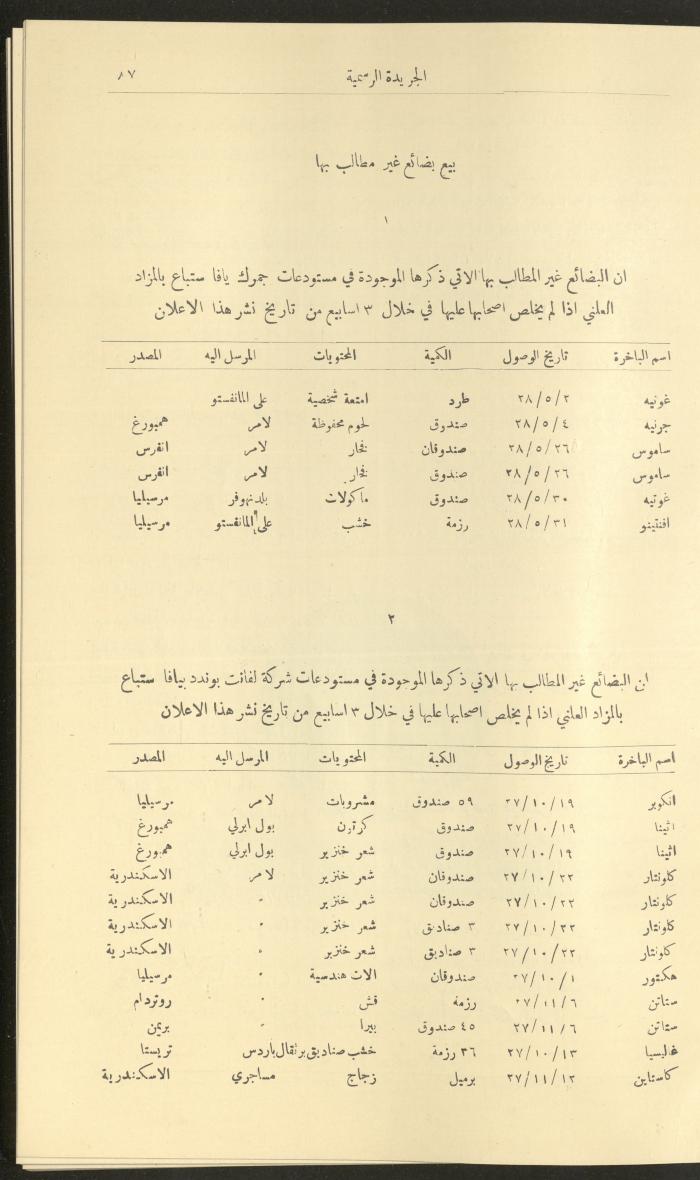 الجريدة الرسمية ٨٧
بيع بضائع غير مطالب بها
١
ان البضائع غير المطالب بها الاتي ذكرها الموجودة في مستودعات جمرك يافا ستباع بالمزاد
العلني اذا لم يخلص اصحابها عليها في خلال ٣ اسابيع من تاريخ نشر هذا الاعلان
اسم الباخرة تاريخ الوصول الكمية المحتويات المرسل اليه المصدر
غوتيه ٢٨/٥/٢ طرد امتعة شخصية على المانفستو
جرنيه ٢٨/٥/٤ صندوق لحوم محفوظة لامر همبورغ
ساموس ٢٨/٥/٢٦ صندوقان فخار لامر انفرس
ساموس ٢٨/٥/٢٦ صندوق فخار لامر انفرس
غوتيه ٢٨/٥/٣٠ صندوق ماكولات بلدنهوفر مرسيليا
افنتينو ٢٨/٥/٣١ رزمة خشب على المانفستو مرسيليا
٢
ان البضائع غير المطالب بها الاتي ذكرها الموجودة في مستودعات شركة لفانت بوندد بيافا ستباع
بالمزاد العلني اذا لم يخلص اصحابها عليها في خلال ٣ اسابيع من تاريخ نشر هذا الاعلان
اسم الباخرة تاريخ الوصول الكمية المحتويات المرسل اليه المصدر
انكوبر ٢٧/١٠/١٩ ٥٩ صندوق مشروبات لامر مرسيليا
اثينا ٢٧/١٠/١٩ صندوق كرتون بول ابرلي همبورغ
اثينا ٢٧/١٠/١٩ صندوق شعر خنزير بول ابرلي همبورغ
كاونتار ٢٧/١٠/٢٢ صندوقان شعر خنزير لامر الاسكندرية
كاونتار ٢٧/١٠/٢٢ صندوقان شعر خنزير " الاسكندرية
كاونتار ٢٧/١٠/٢٢ ٣ صناديق شعر خنزير " الاسكندرية
كاونتار ٢٧/١٠/٢٢ ٣ صناديق شعر خنزير " الاسكندرية
هكتور ٢٧/١٠/١ صندوقان الات هندسية " مرسيليا
ستاتن ٢٧/١١/٦ رزمة قش " روتردام
ستاتن ٢٧/١١/٦ ٤٥ صندوق بيرا " بريمن
غاليسيا ٢٧/١٠/١٣ ٣٦ رزمة خشب صناديق برتقال باردس تريستا
كاستاين ٢٧/١١/١٢ برميل زجاج مساجري الاسكندرية